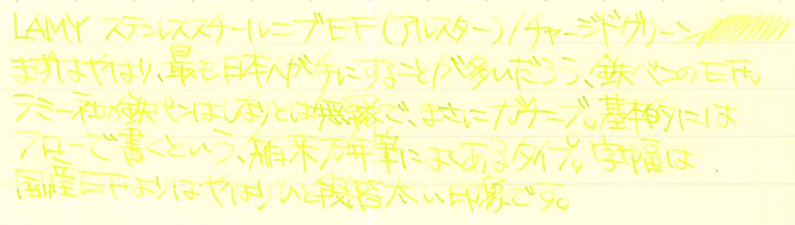 LAMY ステンレススチールニブEF(アルスター)/チャージドグリーン
まずはやはり、最も日本人が手にすることが多いだろう、鉄ペンのEF。
ラミー社の鉄ペンはしなりとは無縁で、まさにガチニブ。基本的には
フローで書くという、舶来万年筆によくあるタイプ。字幅は
国産EFよりはやはり一段階太い印象です。